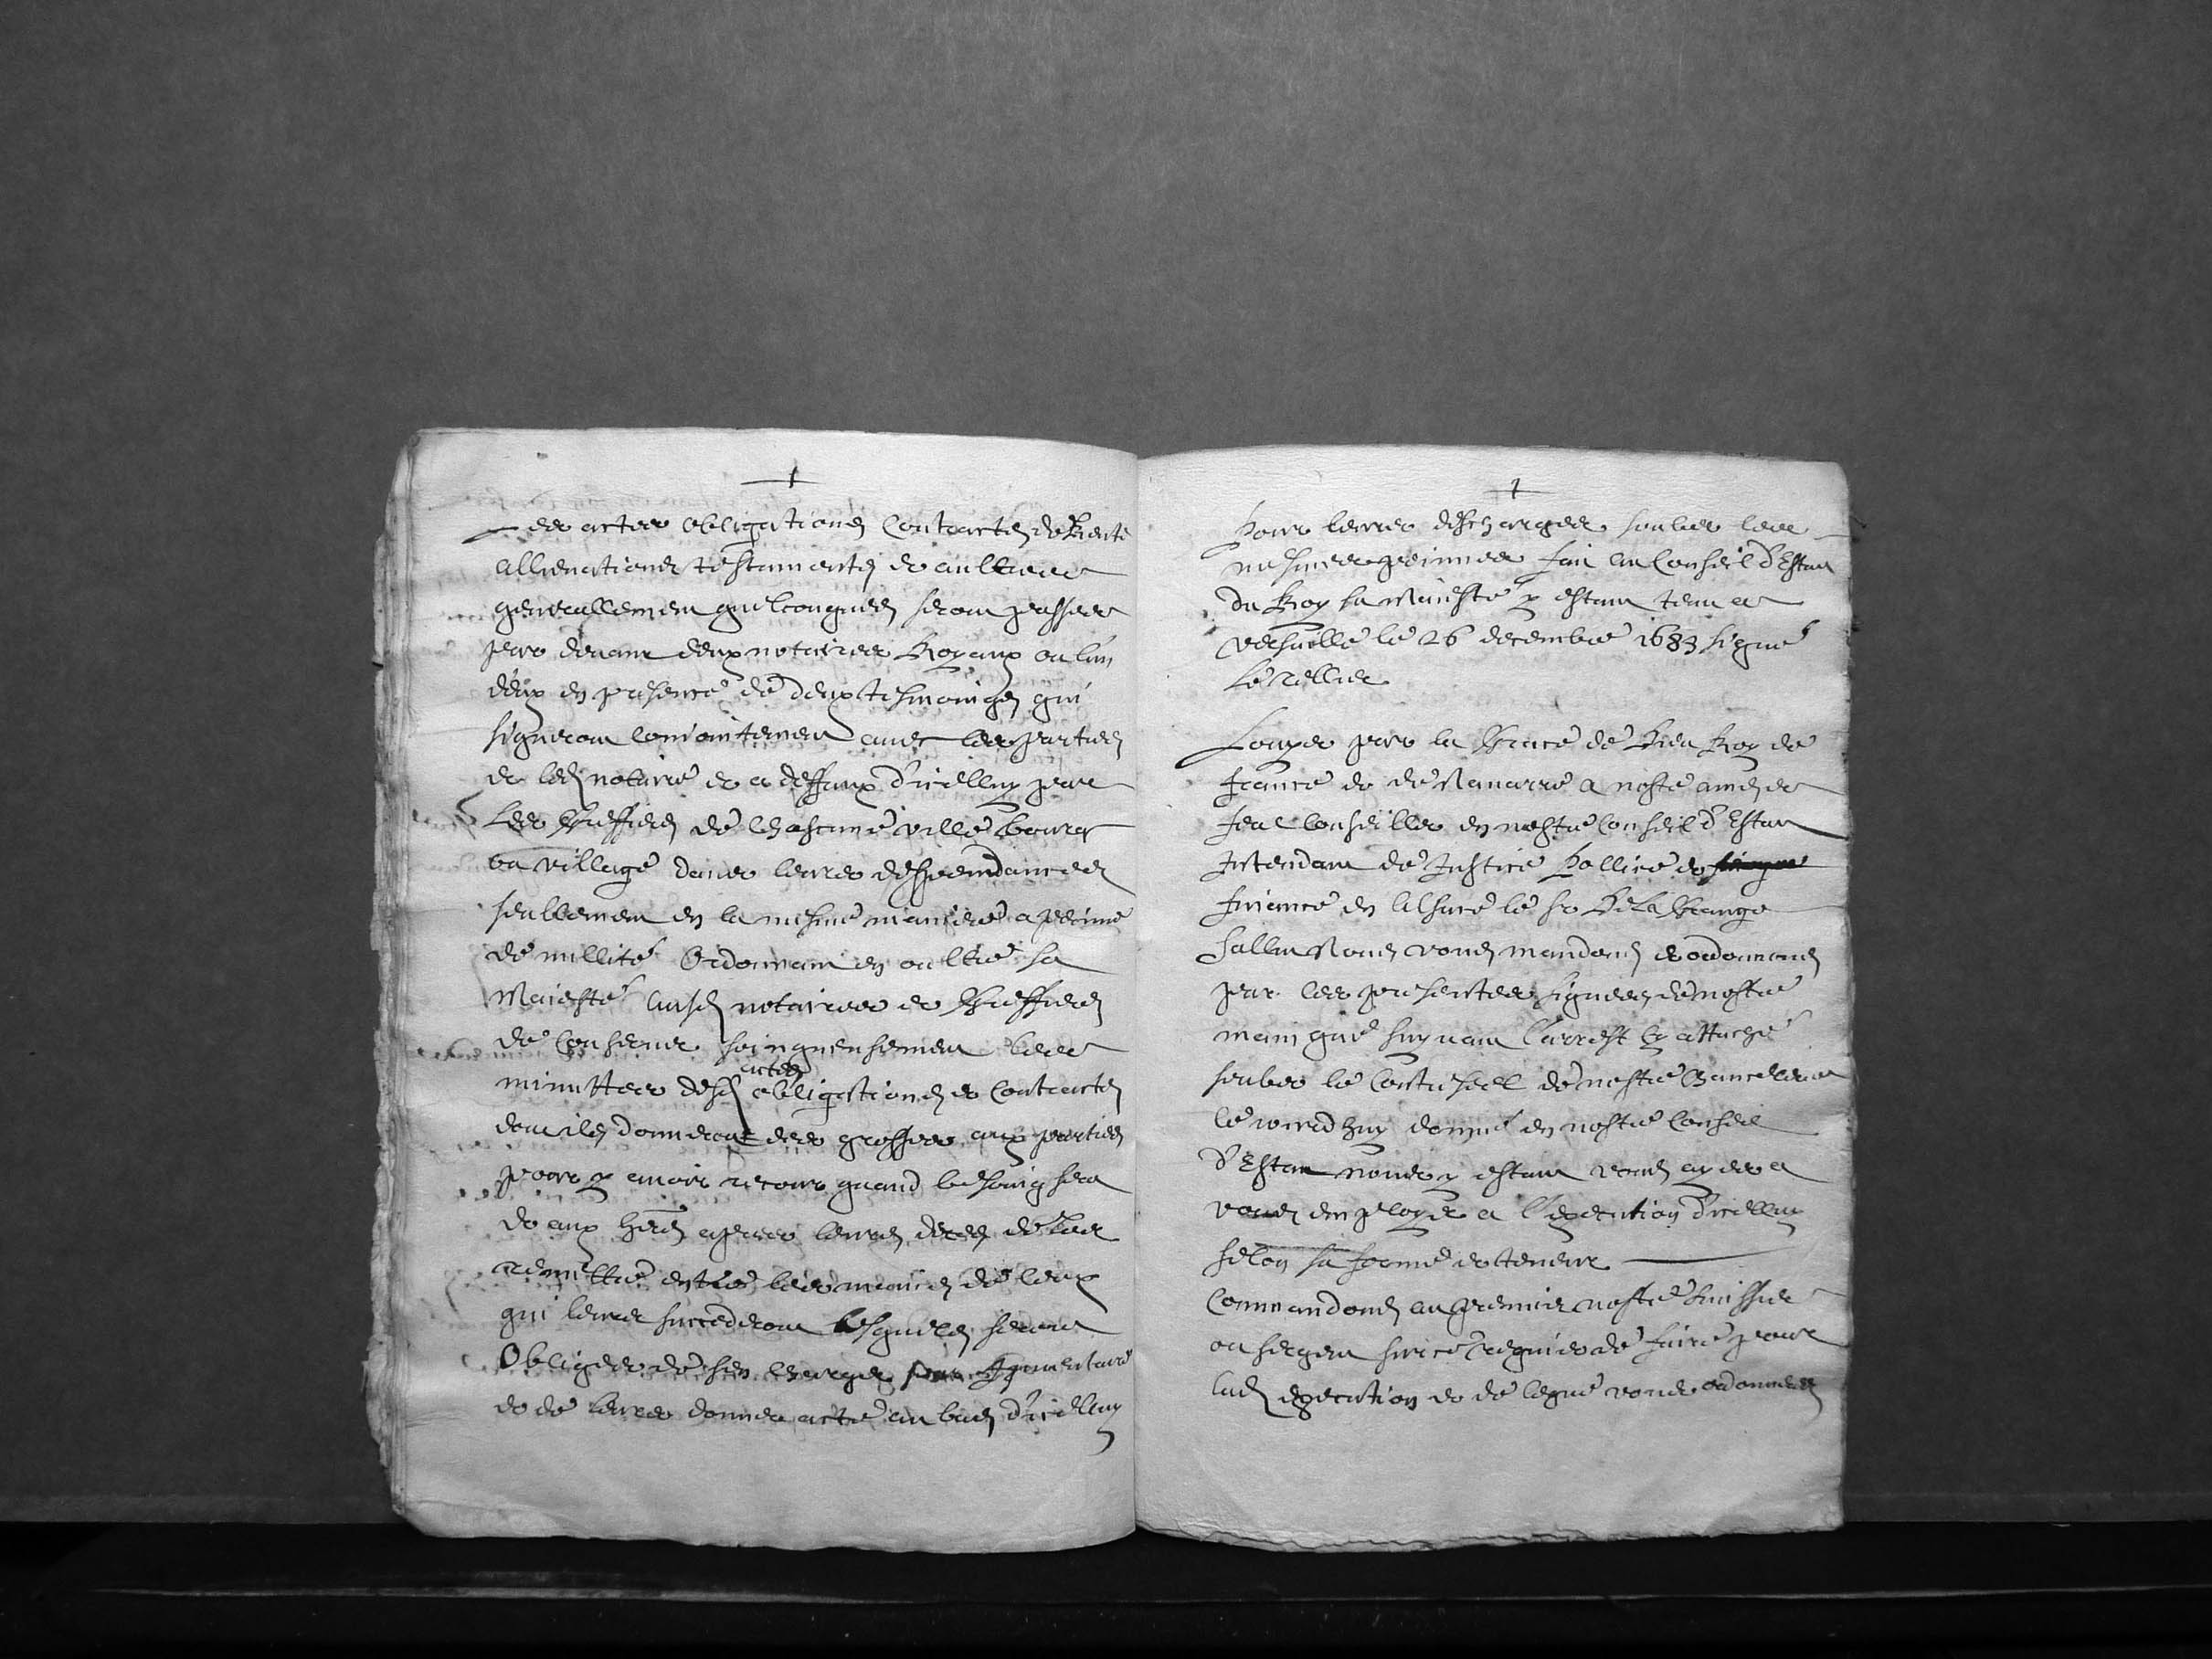 des actes obligations Contractz de Rente
allienations testaments et aultres
generallement quelconques seront passees
par devant deux notaires Royaux ou l'un
d'eux en presence de deux tesmoings qui
signeront conioinctement avec les parties
et led notaire et a deffaux d'icelluy par
Les Greffiers de chascune ville bourg
ou village dans leurs despendances
seullement en la mesme maniere a peine
de nullité Ordonnant en oultre sa
Maiesté ausd notaires et Greffiers
de Conserver soingneusement les
minuttes desd actes obligations et Contractz
dont ils donneront des grosses aux parties
pour y avoir recours quand besoing sera
et aux apres leurs deces de les
remettre entre les mains de ceux
qui leurs succederont lesquels seront
Obliges de s'en charger par
et de leurs donner acte au bas d'icelluy
1
pour leurs descharges soubs les
mesmes peinnes fait au Conseil d'Estat
du Roy sa Maiesté y estant tenu a
Versaille le 26 decembre 1683 signé
Le Tellier
Louys par la Grace de Dieu Roy de
france et de Navarre a nostre amé et
feal Conseiller en nostre Conseil d'Estat
Intendant de Justice Pollice et
finance en Alsace le Sr De La Grange
Sallut Nous vous mandons et ordonnons
par les presentes signees de nostre
main que suyvant l'arrest cy attaché
soubs le Contrescel de nostre Chancelerie
ce iourd'huy donné en nostre Conseil
d'Estat nous y estant vous ayes a
vous employer a l'execution d'icelluy
selon sa forme et teneur
Commandons au premier nostre huissier
ou sergent sur ce requis de faire pour
lad execution et de ce que vous ordonneres